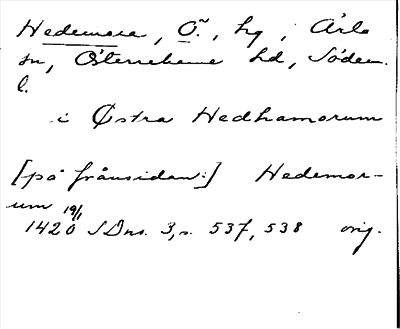 Hedemora, Ö., hg i Ärla
sn, Österrekarne hd, Söderm.
l.
i Østra Hedhamorum
[på frånsidan:] Hedemor-
um
1420 19/1 SDns. 3, s. 537, 538 orig.